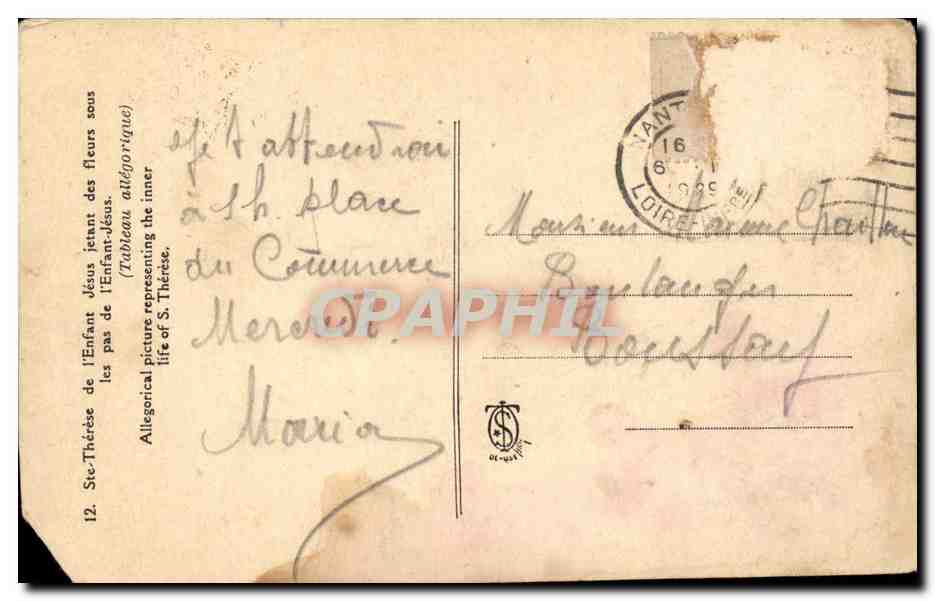 12. Ste-Thérèse de l'Enfant Jésus jetant des fleurs sous
les pas de l'Enfant-Jésus.
(Tableau allégorique)
Allegorical picture representing the inner
life of S. Thérèse.
je t'attendrai
à 1h. place
du Commerce
Mercredi.
Maria
NANT
16
6
1929
LOIRE-INFRE
Monsieur
Boulanger
Roussay
CPAPHIL